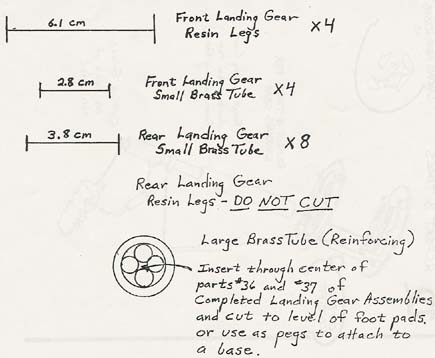 6.1 cm
Front Landing Gear
Resin Legs x4
2.8 cm
Front Landing Gear
Small Brass Tube x4
3.8 cm
Rear Landing Gear
Small Brass Tube x8
Rear Landing Gear
Resin Legs - DO NOT CUT
Large Brass Tube (Reinforcing)
Insert through center of
parts #36 and #37 of
Completed Landing Gear Assemblies
and cut to level of foot pads.
or use as pegs to attach to
a base.